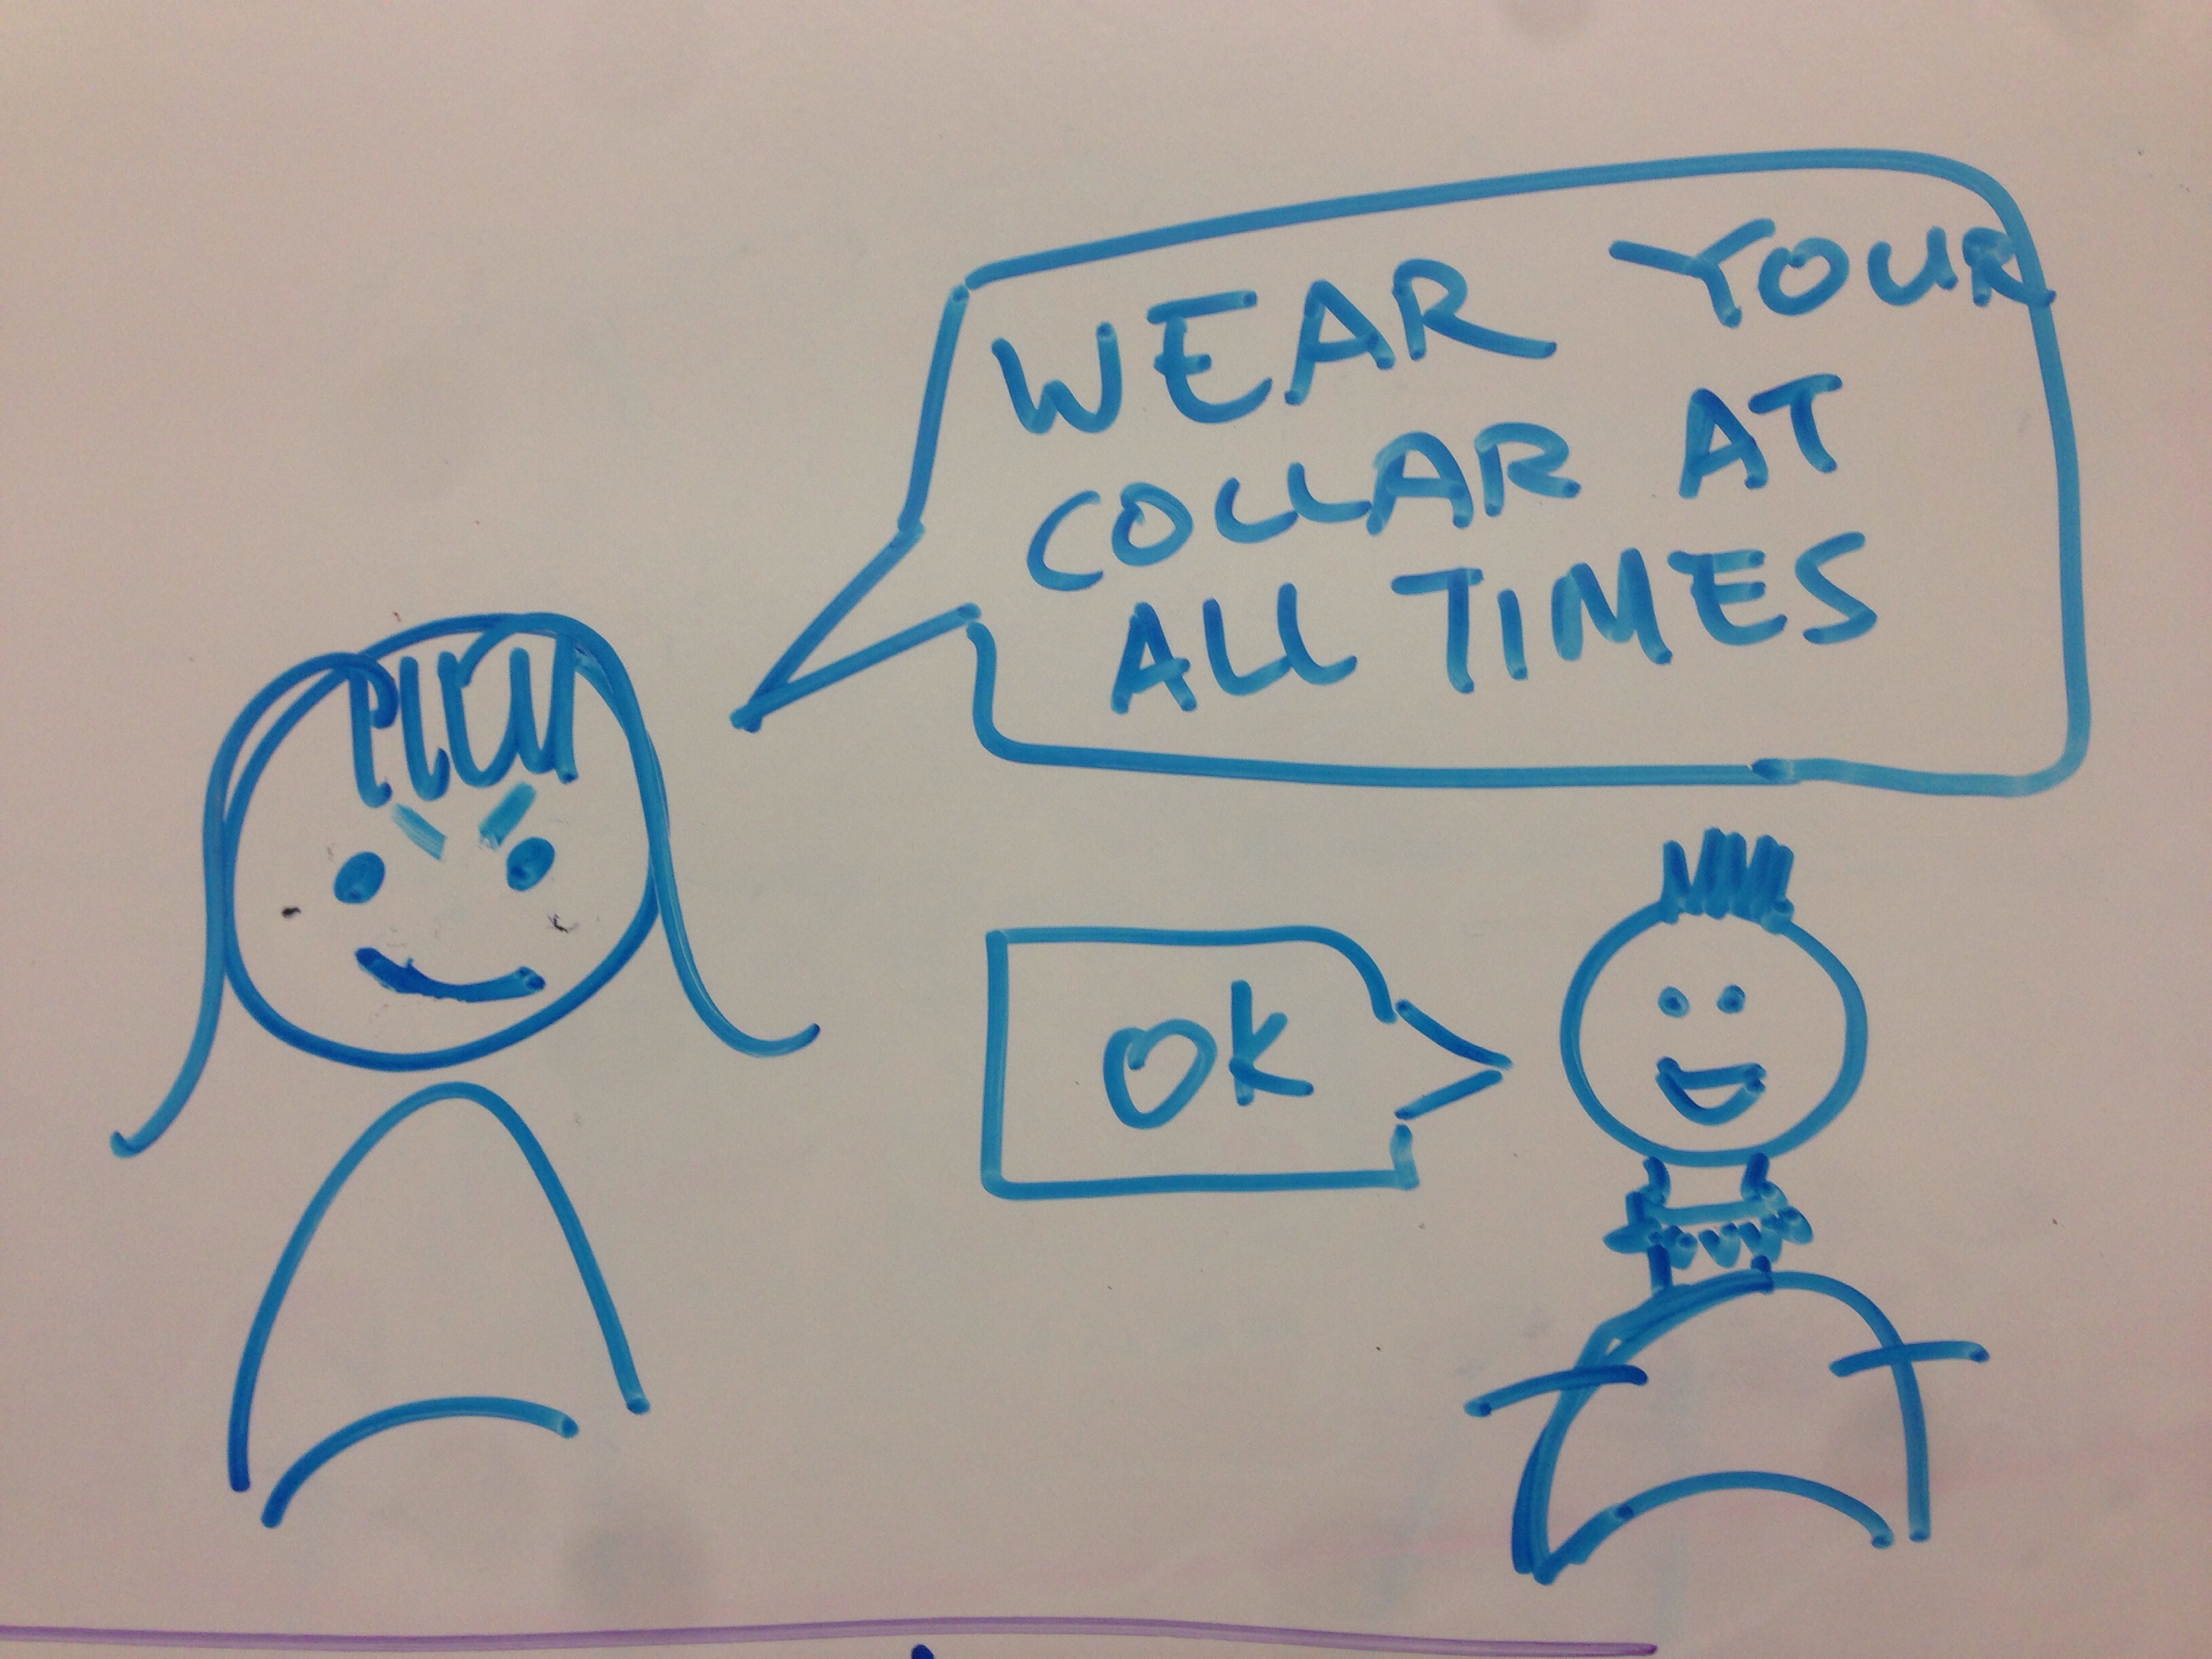 WEAR YOUR
COLLAR AT
ALL TIMES
OK